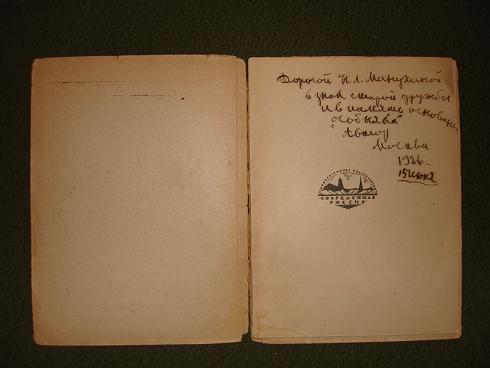 Дорогой Н. Л. Манухиной
в знак старой дружбы
и в память основания
"особняка"
Автор
Москва
1926
15 июня
СОВРЕМЕННАЯ
РОССИЯ